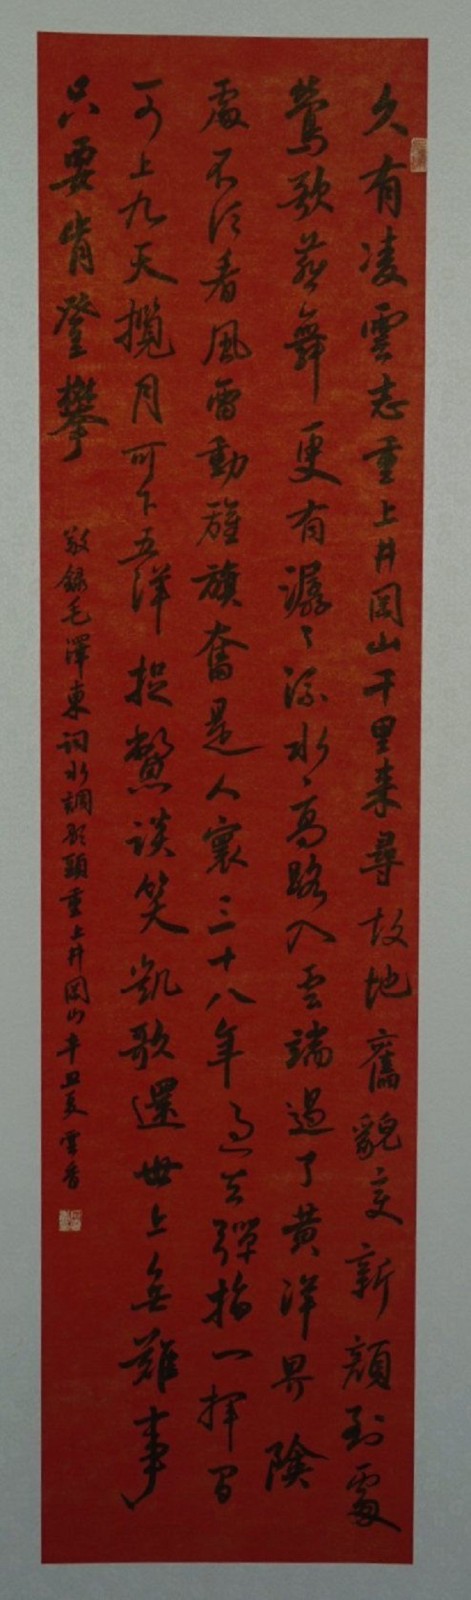 久有凌雲志重上井岡山千里来尋故地舊貌变新顔到處
鶯歌燕舞更有潺〻流水高路入云端過了黄洋界險
處不須看風雷動旌旗奮是人寰三十八年過去彈指一揮間
可上九天攬月可下五洋捉鱉談笑凱歌還世上無難事
只要肯登攀
敬録毛澤東詞水調歌頭重上井岡山辛丑夏雲香